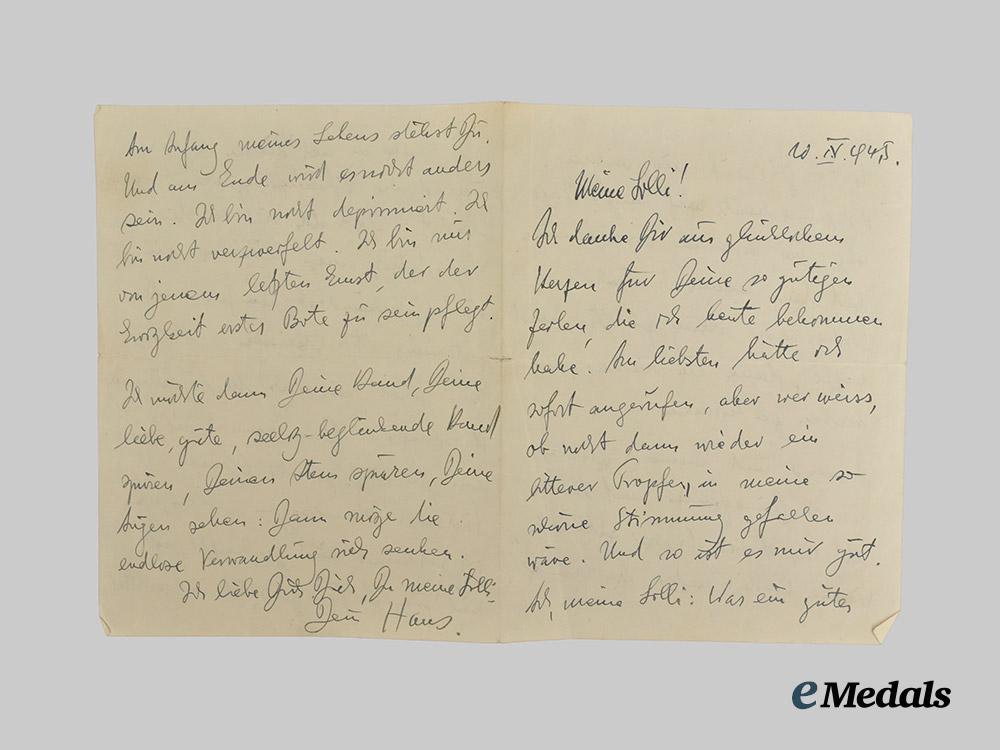 10. IV. 1945.
Meine Lolli!
Ich danke Dir aus glücklichem
Herzen für Deine so gütigen
Zeilen, die ich heute bekommen
habe. Am liebsten hätte ich
sofort angerufen, aber wer weiss,
ob nicht dann wieder ein
bitterer Tropfen in meine so
schöne Stimmung gefallen
wäre. Und so ist es mir gut.
Ach, meine Lolli: Was ein gutes
Am Anfang meines Lebens stehst Du.
Und am Ende wird es nicht anders
sein. Ich bin nicht deprimiert. Ich
bin nicht verzweifelt. Ich bin nur
von jenem letzten Ernst, der der
Ewigkeit erster Bote zu sein pflegt.
Ich möchte dann Deine Hand, Deine
liebe, gute, seelig-beglückende Hand
spüren, Deinen Atem spüren, Deine
Augen sehen: Dann möge die
endlose Verwandlung sich senken.
Ich liebe Dich Dich, Du meine Lolli.
Dein Hans.
eMedals